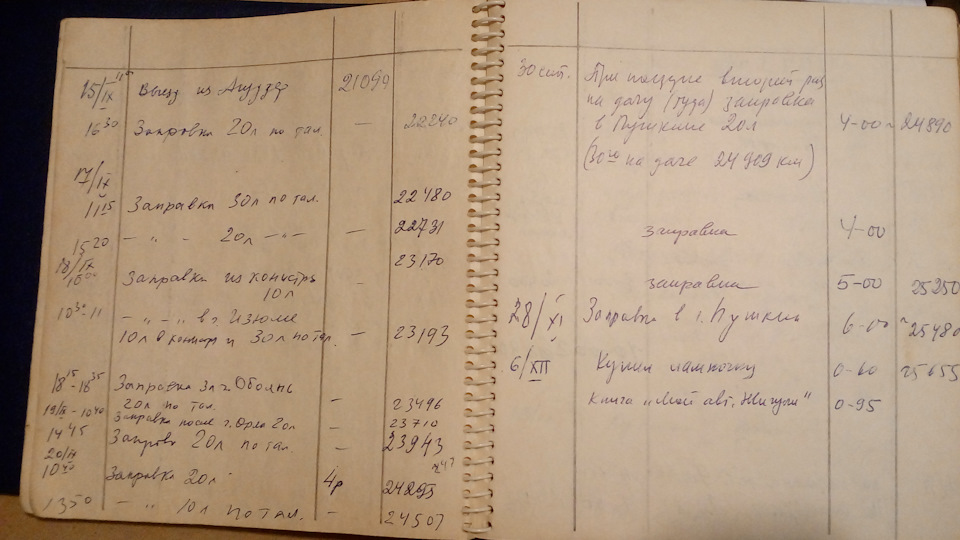 15/IX Выезд из Агудзер 21090
16 30 Заправка 20л по тал. — 22240
17/IX
11 15 Заправка 30л по тал. 22480
— „ — 20л — „ — — 22731
15 20 23170
18/IX
10 00 Заправка из канистры
10л
10 30 - 11 — „ — „ в г. Изюме
10л в канистр и 30л по тал. — 23193
18 15 - 18 35 Заправка в г. Обоянь
20л по тал. — 23496
19/IX - 10 40 Заправка после г. Орла 20л — 23710
14 45 Заправка 20л по тал. — 23943
20/IX
10 20 Заправка 20л 4р 24295
13 50 — „ 10л по тал. — 24507
30 сент. При поездке второй раз
на дачу (туда) заправка
в Пушкине 20л 4-00 ~ 24890
(30го на даче 24909 км)
заправка 4-00
заправка 5-00 25250
28/XI Заправка в г. Пушкин 6-00 ~25480
6/XII Купил лампочку 0-60 25655
Книга „Мой авт. Жигули" 0-95